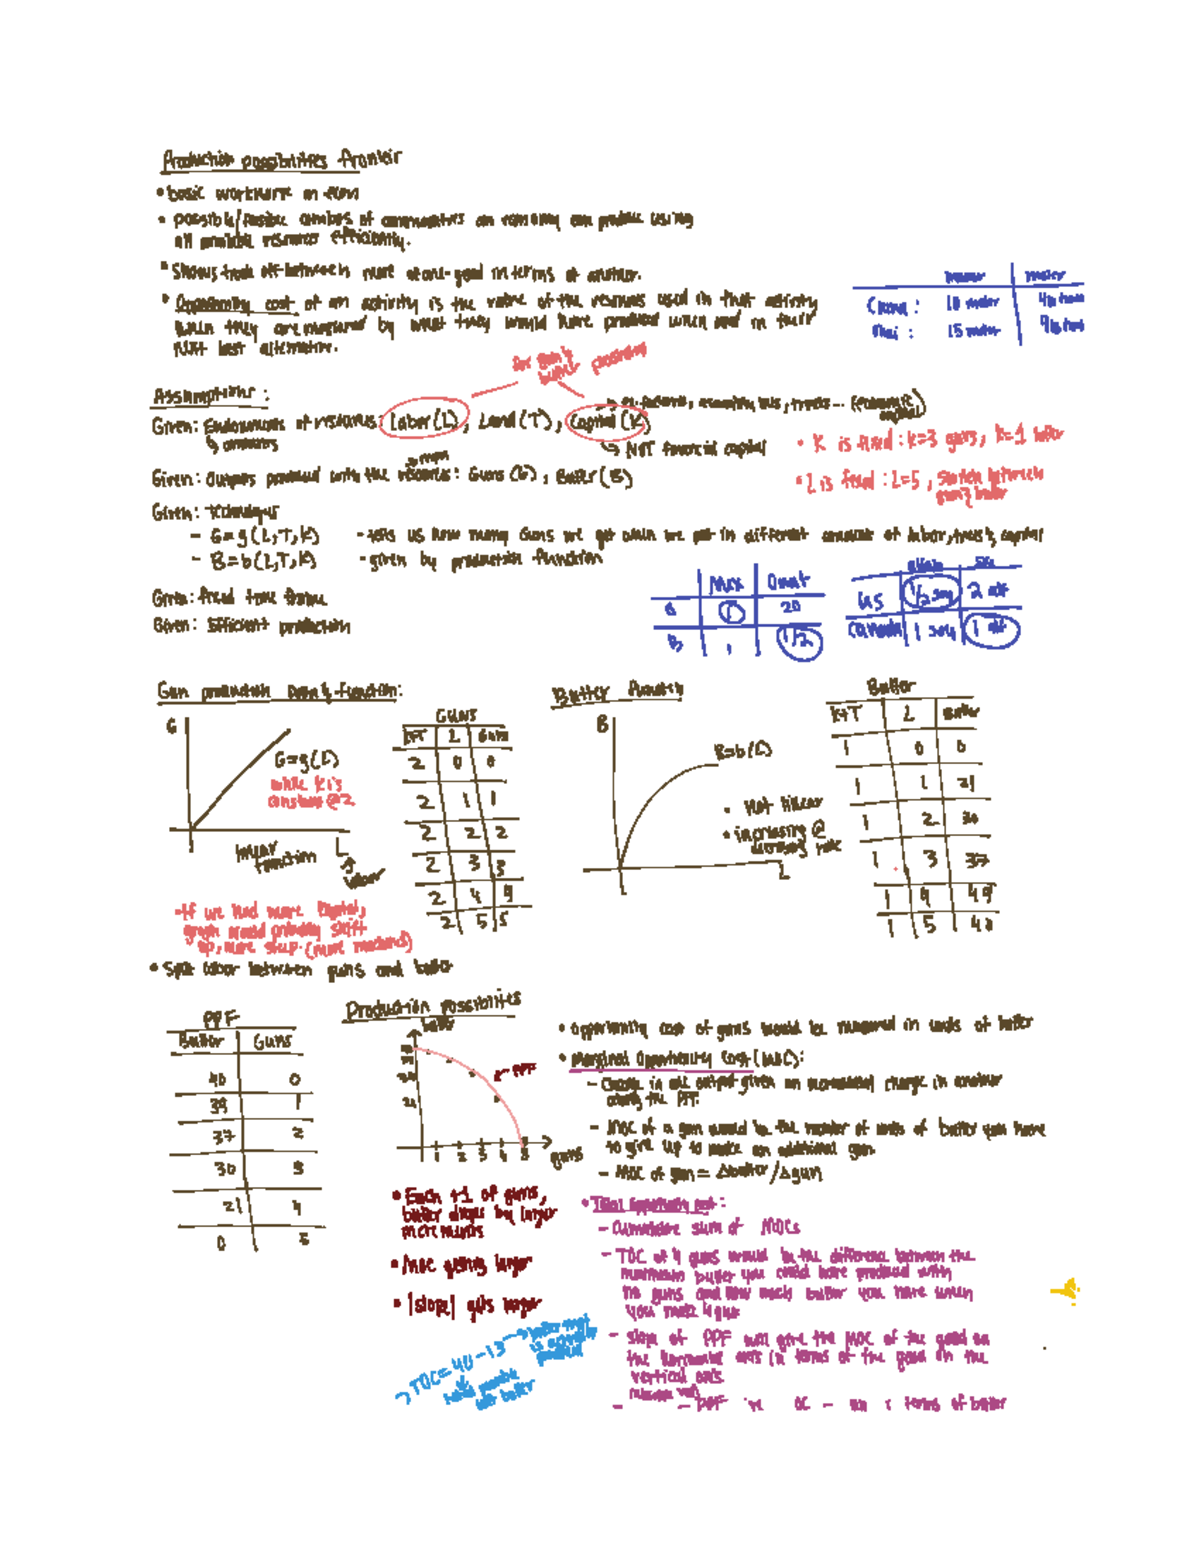 Production possibilities fronteir
• basic workhorse in econ
• possible/feasible combos of commodities an economy can produce using
all available resources efficiently.
• Shows trade off between more of one good in terms of another.
• Opportunity cost of an activity is the value of the resources used in that activity
when they are measured by what they would have produced when used in their
next best alternative.
10 meter
15 meter
for guns & butter
Assumptions:
Given: Endowments of resources: Labor(L), Land(T), Capital(K)
↳ amounts
↳ NOT financial capital
• K is fixed: k=3 guns, k=1 butter
• L is fixed: L=5, switch between
guns & butter
Given: Outputs produced with the resources: Guns(G), Butter(B)
Given: techniques
- G=g(L,T,K) - tells us how many Guns we get when we put in different amounts of labor, land & capital
- B=b(L,T,K) - given by production function
Given: fixed time frame
Given: Efficient production
1 20
B 1 1/2
US 1/2 soy 2
Canada 1 soy 1
Gun production function:
G
G=g(L)
while K is
constant @ 2
linear
function
L
labor
GUNS
K+T L Guns
2 0 0
2 1 1
2 2 2
2 3 3
2 4 4
2 5 5
Butter function
B
B=b(L)
• Not linear
• increasing @
decreasing rate
L
Butter
K+T L Butter
1 0 0
1 1 21
1 2 30
1 3 37
1 4
1 5 40
• If we had more capital,
graph would probably shift
up, more steep (more machines)
• Split labor between guns and butter
PPF
Butter Guns
40 0
39 1
37 2
30 3
21 4
0 5
Production possibilities
butter
21
← PPF
1 2 3 4 5
guns
• Opportunity cost of guns would be measured in units of butter
• Marginal Opportunity Cost (MOC):
- Change in one output given an incremental change in another
along the PPF.
- MOC of a gun would be the number of units of butter you have
to give up to make an additional gun.
- MOC of gun = Δbutter/Δgun
• Each +1 of guns,
butter drops by larger
increments
• MOC getting larger
• |slope| gets larger
• Total opportunity cost:
- Cumulative sum of MOCs
- TOC of 4 guns would be the difference between the
maximum butter you could have produced with
no guns and how much butter you have when
you make 4 guns
→ TOC=40-13 → butter that
is actually
produced
total possible
butter
- slope of PPF will give the MOC of the good on
the horizontal axis in terms of the good on the
vertical axis
terms of butter